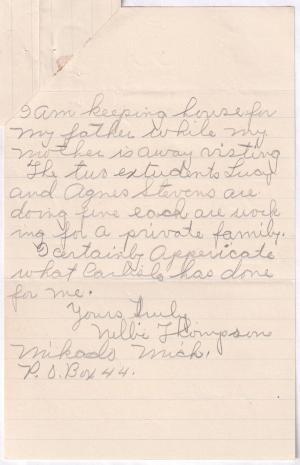 I am keeping house for
my father while my
mother is away visting
The two exstudents Lucy
and Agnes Stevens are
doing fine each are work
ing for a private family.
I certainly Appericate
what Carlisle has done
for me.
Yours Truly
Nellie Thompson
Mikado Mich.
P.O. Box 44.